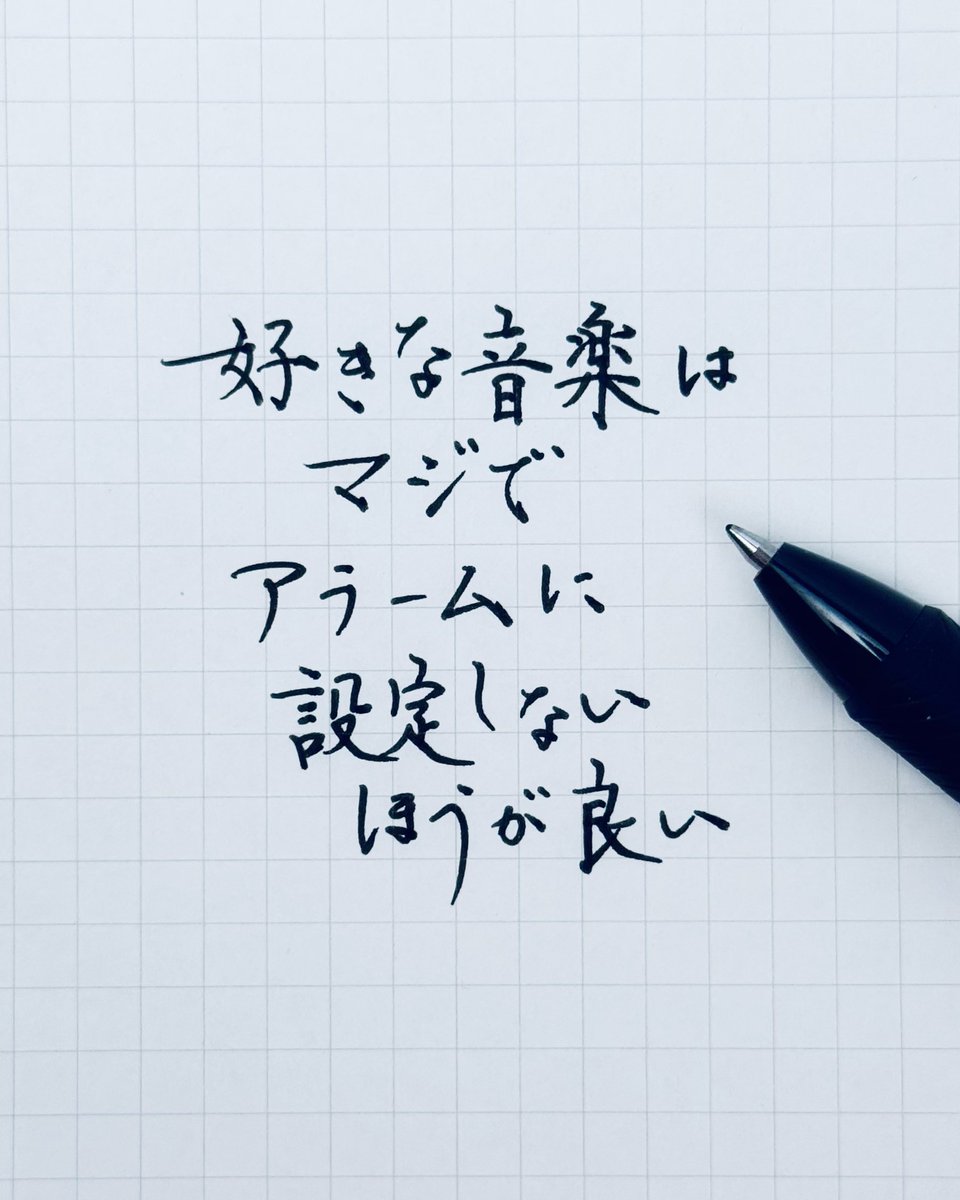 好きな音楽は
マジで
アラームに
設定しない
ほうが良い